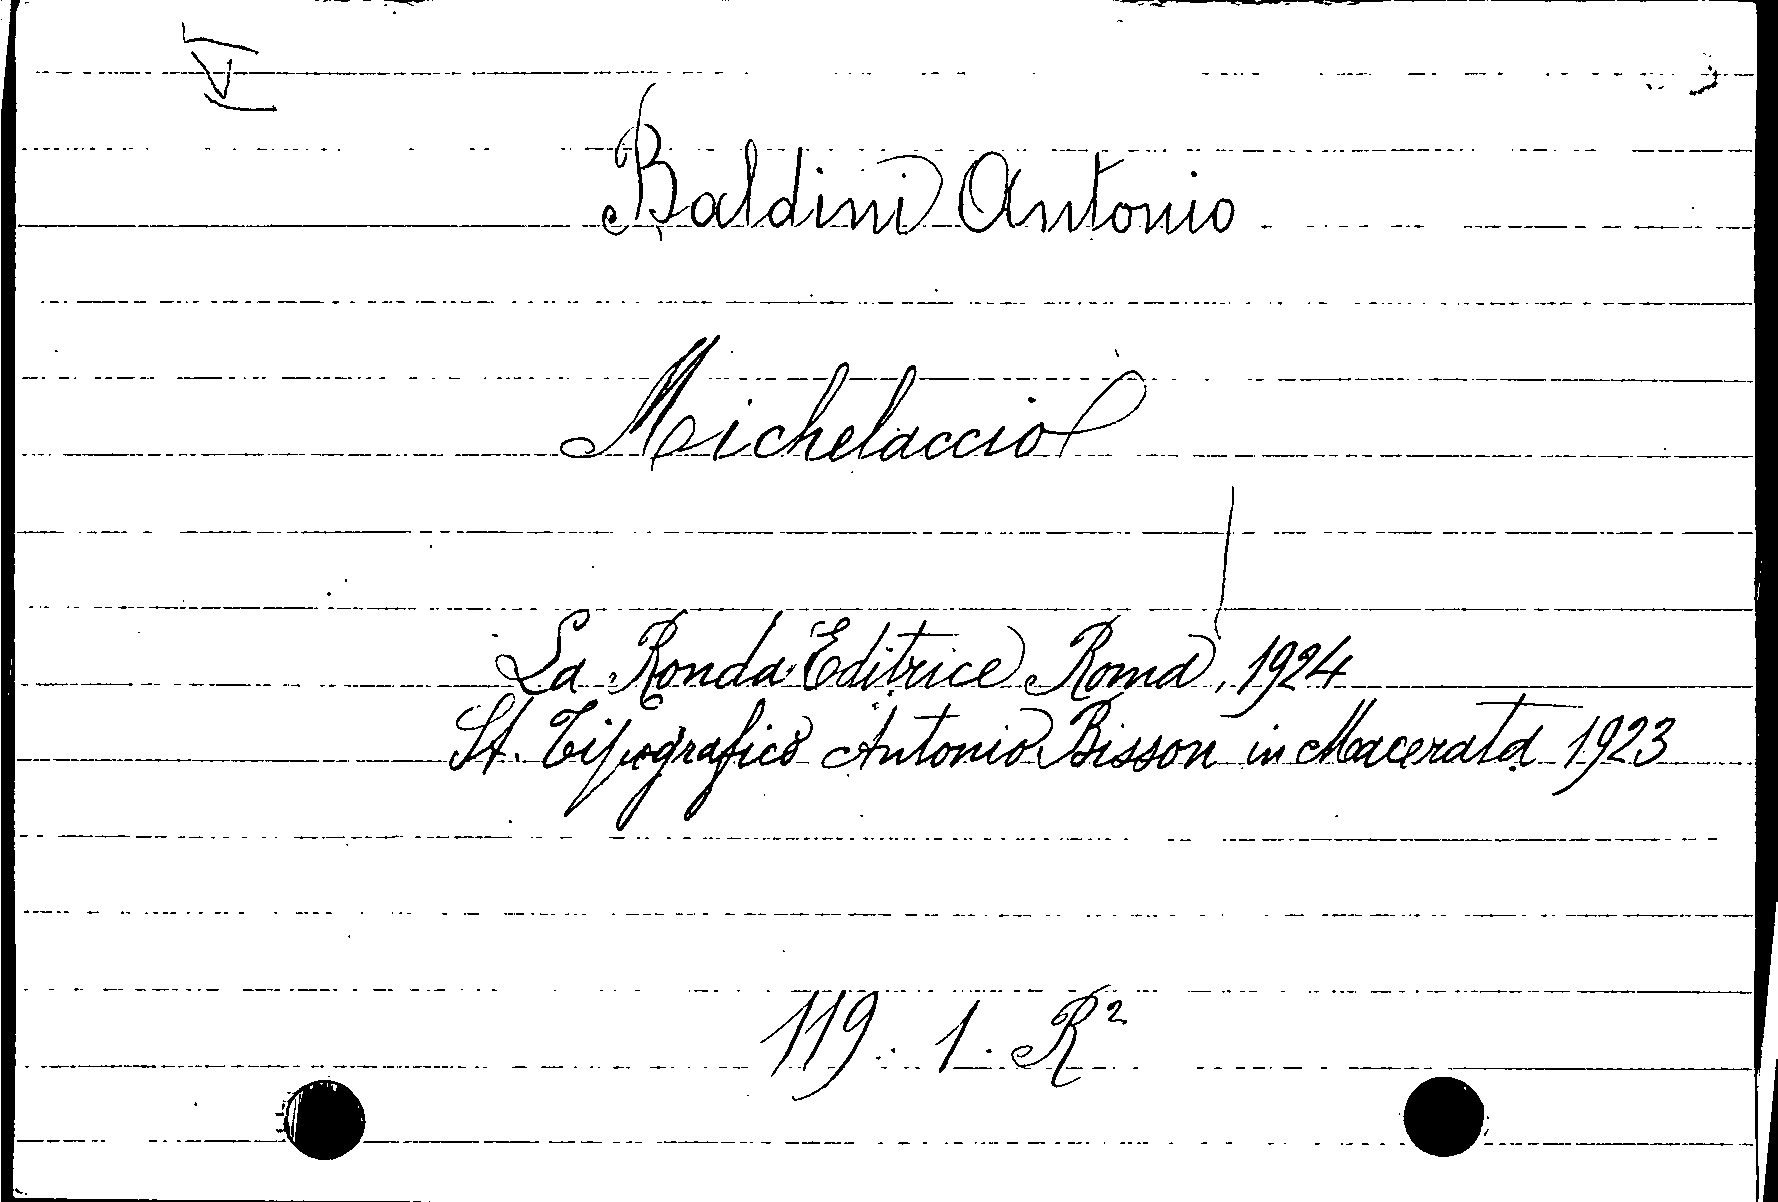 V
Baldini Antonio
Michelaccio
La Ronda Editrice Roma, 1924
St. Tipografico Antonio Bisson in Macerata 1923
119. 1. R²